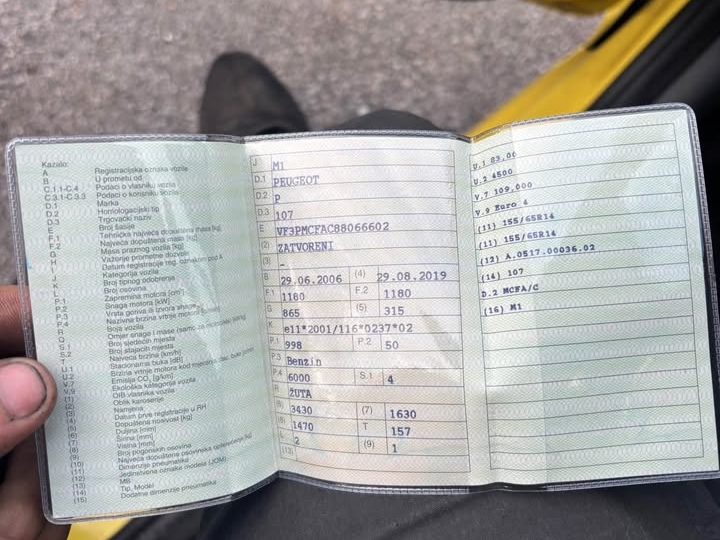 Kazalo:
A Registracijska oznaka vozila
B U prometu od
C.1.1-C.4 Podaci o vlasniku vozila
C.3.1-C.3.3 Podaci o korisniku vozila
D.1 Marka
D.2 Homologacijski tip
D.3 Trgovački naziv
E Broj šasije
F.1 Tehnička najveća dopuštena masa [kg]
F.2 Najveća dopuštena masa [kg]
G Masa praznog vozila [kg]
H Važenje prometne dozvole
I Datum registracije
J Kategorija vozila
K Broj tipnog odobrenja
L Broj osovina
P.1 Zapremina motora [cm]
P.2 Snaga motora [kW]
P.3 Vrsta goriva ili izvora snage
P.4 Nazivna brzina vrtnje motora
R Boja vozila
Q Omjer snage i mase
S.1 Broj sjedećih mjesta
S.2 Broj stajaćih mjesta
T Najveća brzina [km/h]
U.1 Stacionarna buka [dB]
U.2 Brzina vrtnje motora kod mjerenja
V.7 Emisija CO₂ [g/km]
V.9 Ekološka kategorija vozila
(1) OIB vlasnika vozila
(2) Oblik karoserije
(3) Namjena
(4) Datum prve registracije u RH
(5) Dopuštena nosivost [kg]
(6) Duljina [mm]
(7) Širina [mm]
(8) Visina [mm]
(9) Broj pogonskih osovina
(10) Najveća dopuštena osovinska opterećenja [kg]
(11) Dimenzije pneumatika
(12) Jedinstvena oznaka modela (JOM)
(13) MB
(14) Tip, Model
(15) Dodatne dimenzije pneumatika
J M1
D.1 PEUGEOT
D.2 P
D.3 107
E VF3PMCFAC88066602
(2) ZATVORENI
(3) -
B 29.06.2006 (4) 29.08.2019
F.1 1180 F.2 1180
G 865 (5) 315
K e11*2001/116*0237*02
P.1 998 P.2 50
P.3 Benzin
P.4 6000 S.1 4
R ŽUTA
(6) 3430 (7) 1630
(8) 1470 T 157
L 2 (9) 1
(13)
U.1 83,00
U.2 4500
V.7 109,000
V.9 Euro 4
(11) 155/65R14
(11) 155/65R14
(12) A.0517.00036.02
(14) 107
D.2 MCFA/C
(16) M1